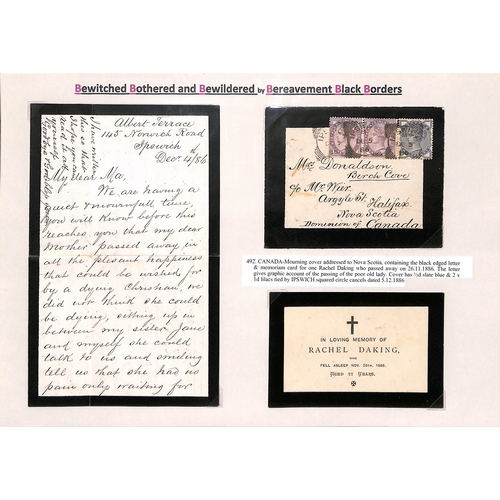 Bewitched Bothered and Bewildered by Bereavement Black Borders
Albert Terrace
145 Norwich Road
Ipswich
Decr 4/86
My dear Ma,
We are having a
quiet & mournful time,
you will know before this
reaches you that my dear
Mother passed away in
all the pleasant happiness
that could be wished for
by a dying Christian, we
did not think she could
be dying, sitting up in
between my sister Jane
and myself she could
talk to us and smiling
tell us that she had no
pain only waiting for
Mrs Donaldson
Birch Cove
c/o Mr Wier
Argyle St Halifax
Nova Scotia
Dominion of Canada
492. CANADA-Mourning cover addressed to Nova Scotia, containing the black edged letter
& memoriam card for one Rachel Daking who passed away on 26.11.1886. The letter
gives graphic account of the passing of the poor old lady. Cover has ½d slate blue & 2 x
1d lilacs tied by IPSWICH squared circle cancels dated 5.12.1886
IN LOVING MEMORY OF
RACHEL DAKING,
WHO
FELL ASLEEP NOV. 1886,
AGED 77 YEARS.